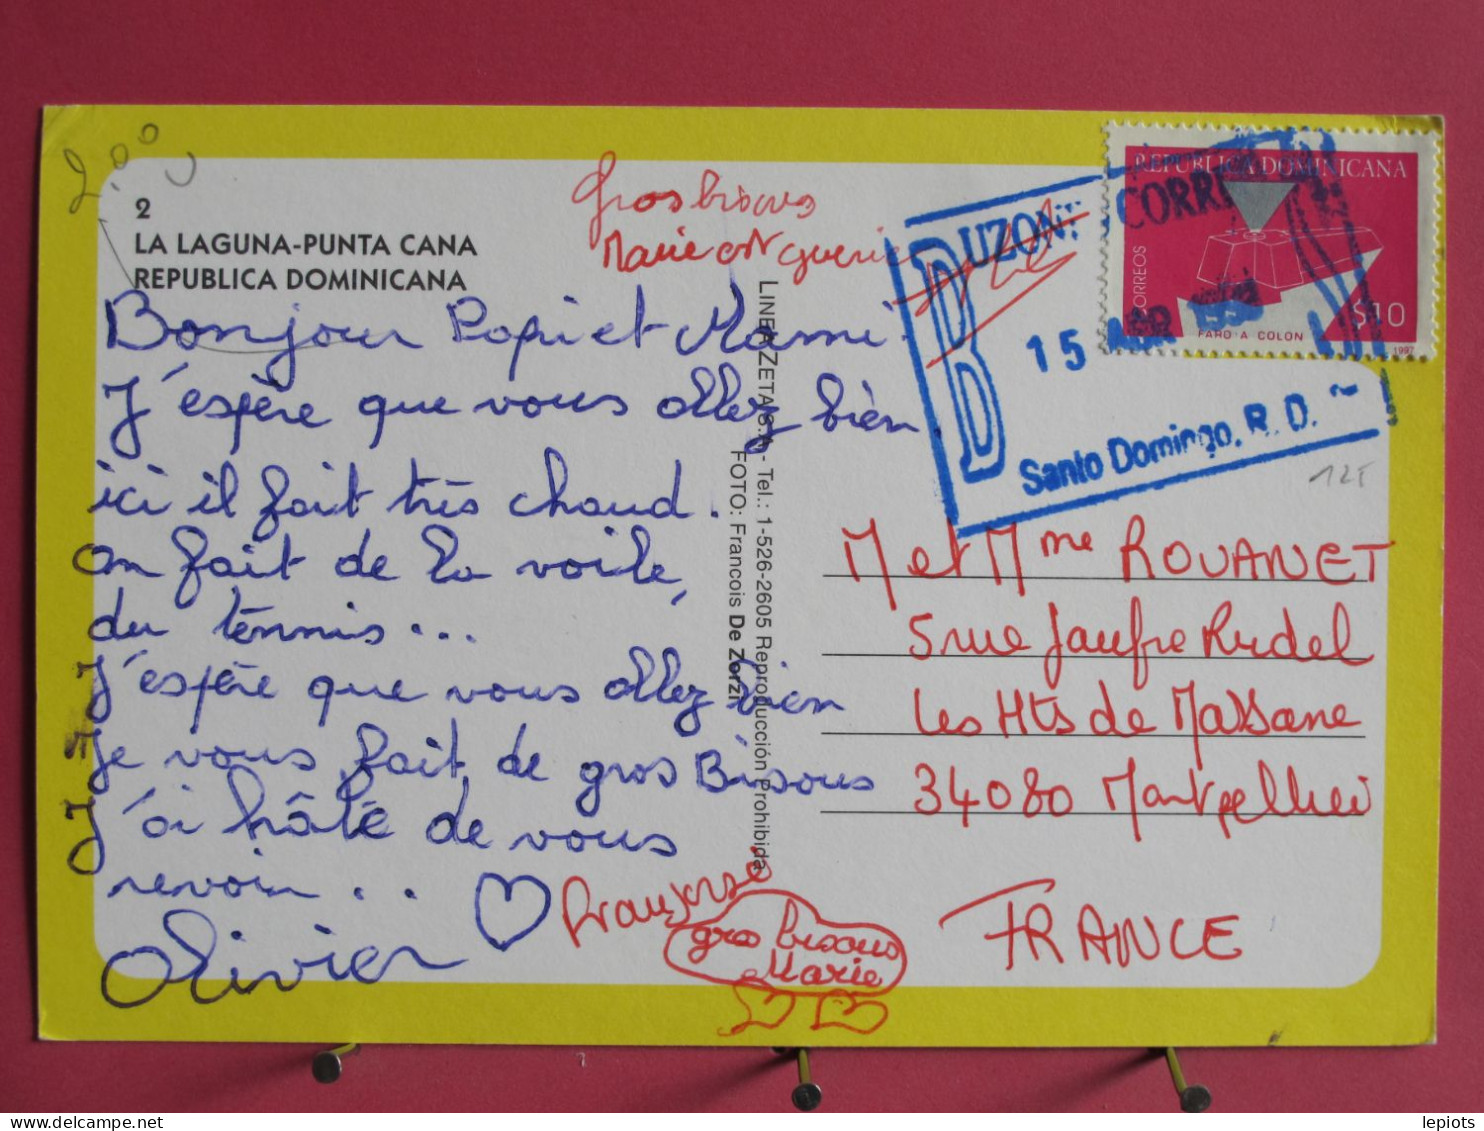 2.00
2
LA LAGUNA-PUNTA CANA
REPUBLICA DOMINICANA
Gros bisous
Marie est guerie
Bonjour Papi et Mami.
J'éspère que vous allez bien.
ici il fait très chaud.
on fait de la voile,
du ténnis...
J'éspère que vous allez bien
Je vous fait de gros Bisous
J'ai hâté de vous
revoir...
Olivier
Françoise
gros bisous
Marie
LINEA ZETA S.A. - Tel.: 1-526-2605 Reproducción Prohibida
FOTO: Francois De Zorzi
BUZON
CORREO
15 ABR
Santo Domingo, R.D.
REPUBLICA DOMINICANA
CORREOS
$10
FARO A COLON
1997
12F
M et Mme ROUANET
5 rue Jaufre Rudel
Les Hts de Massane
34080 Montpellier
FRANCE
lepiots